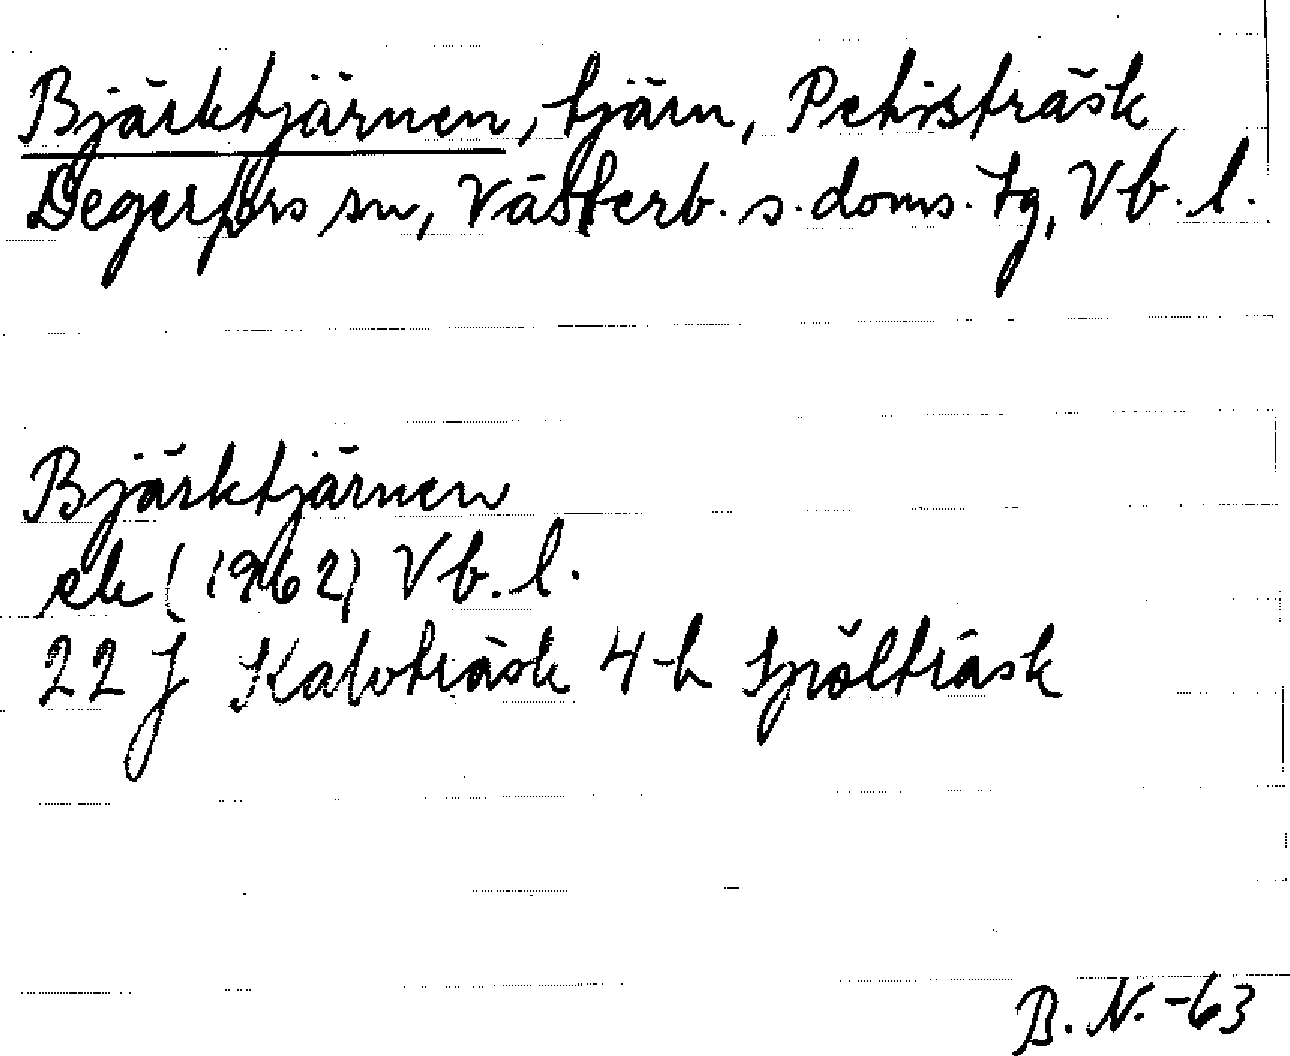 Bjärktjärnen, tjärn, Petisträsk,
Degerfors sn, Västerb. s. doms. tg, Vb. l.
Bjärktjärnen
ek (1962) Vb. l.
22 J Kalvträsk 4 h Spölträsk
B. N. -63